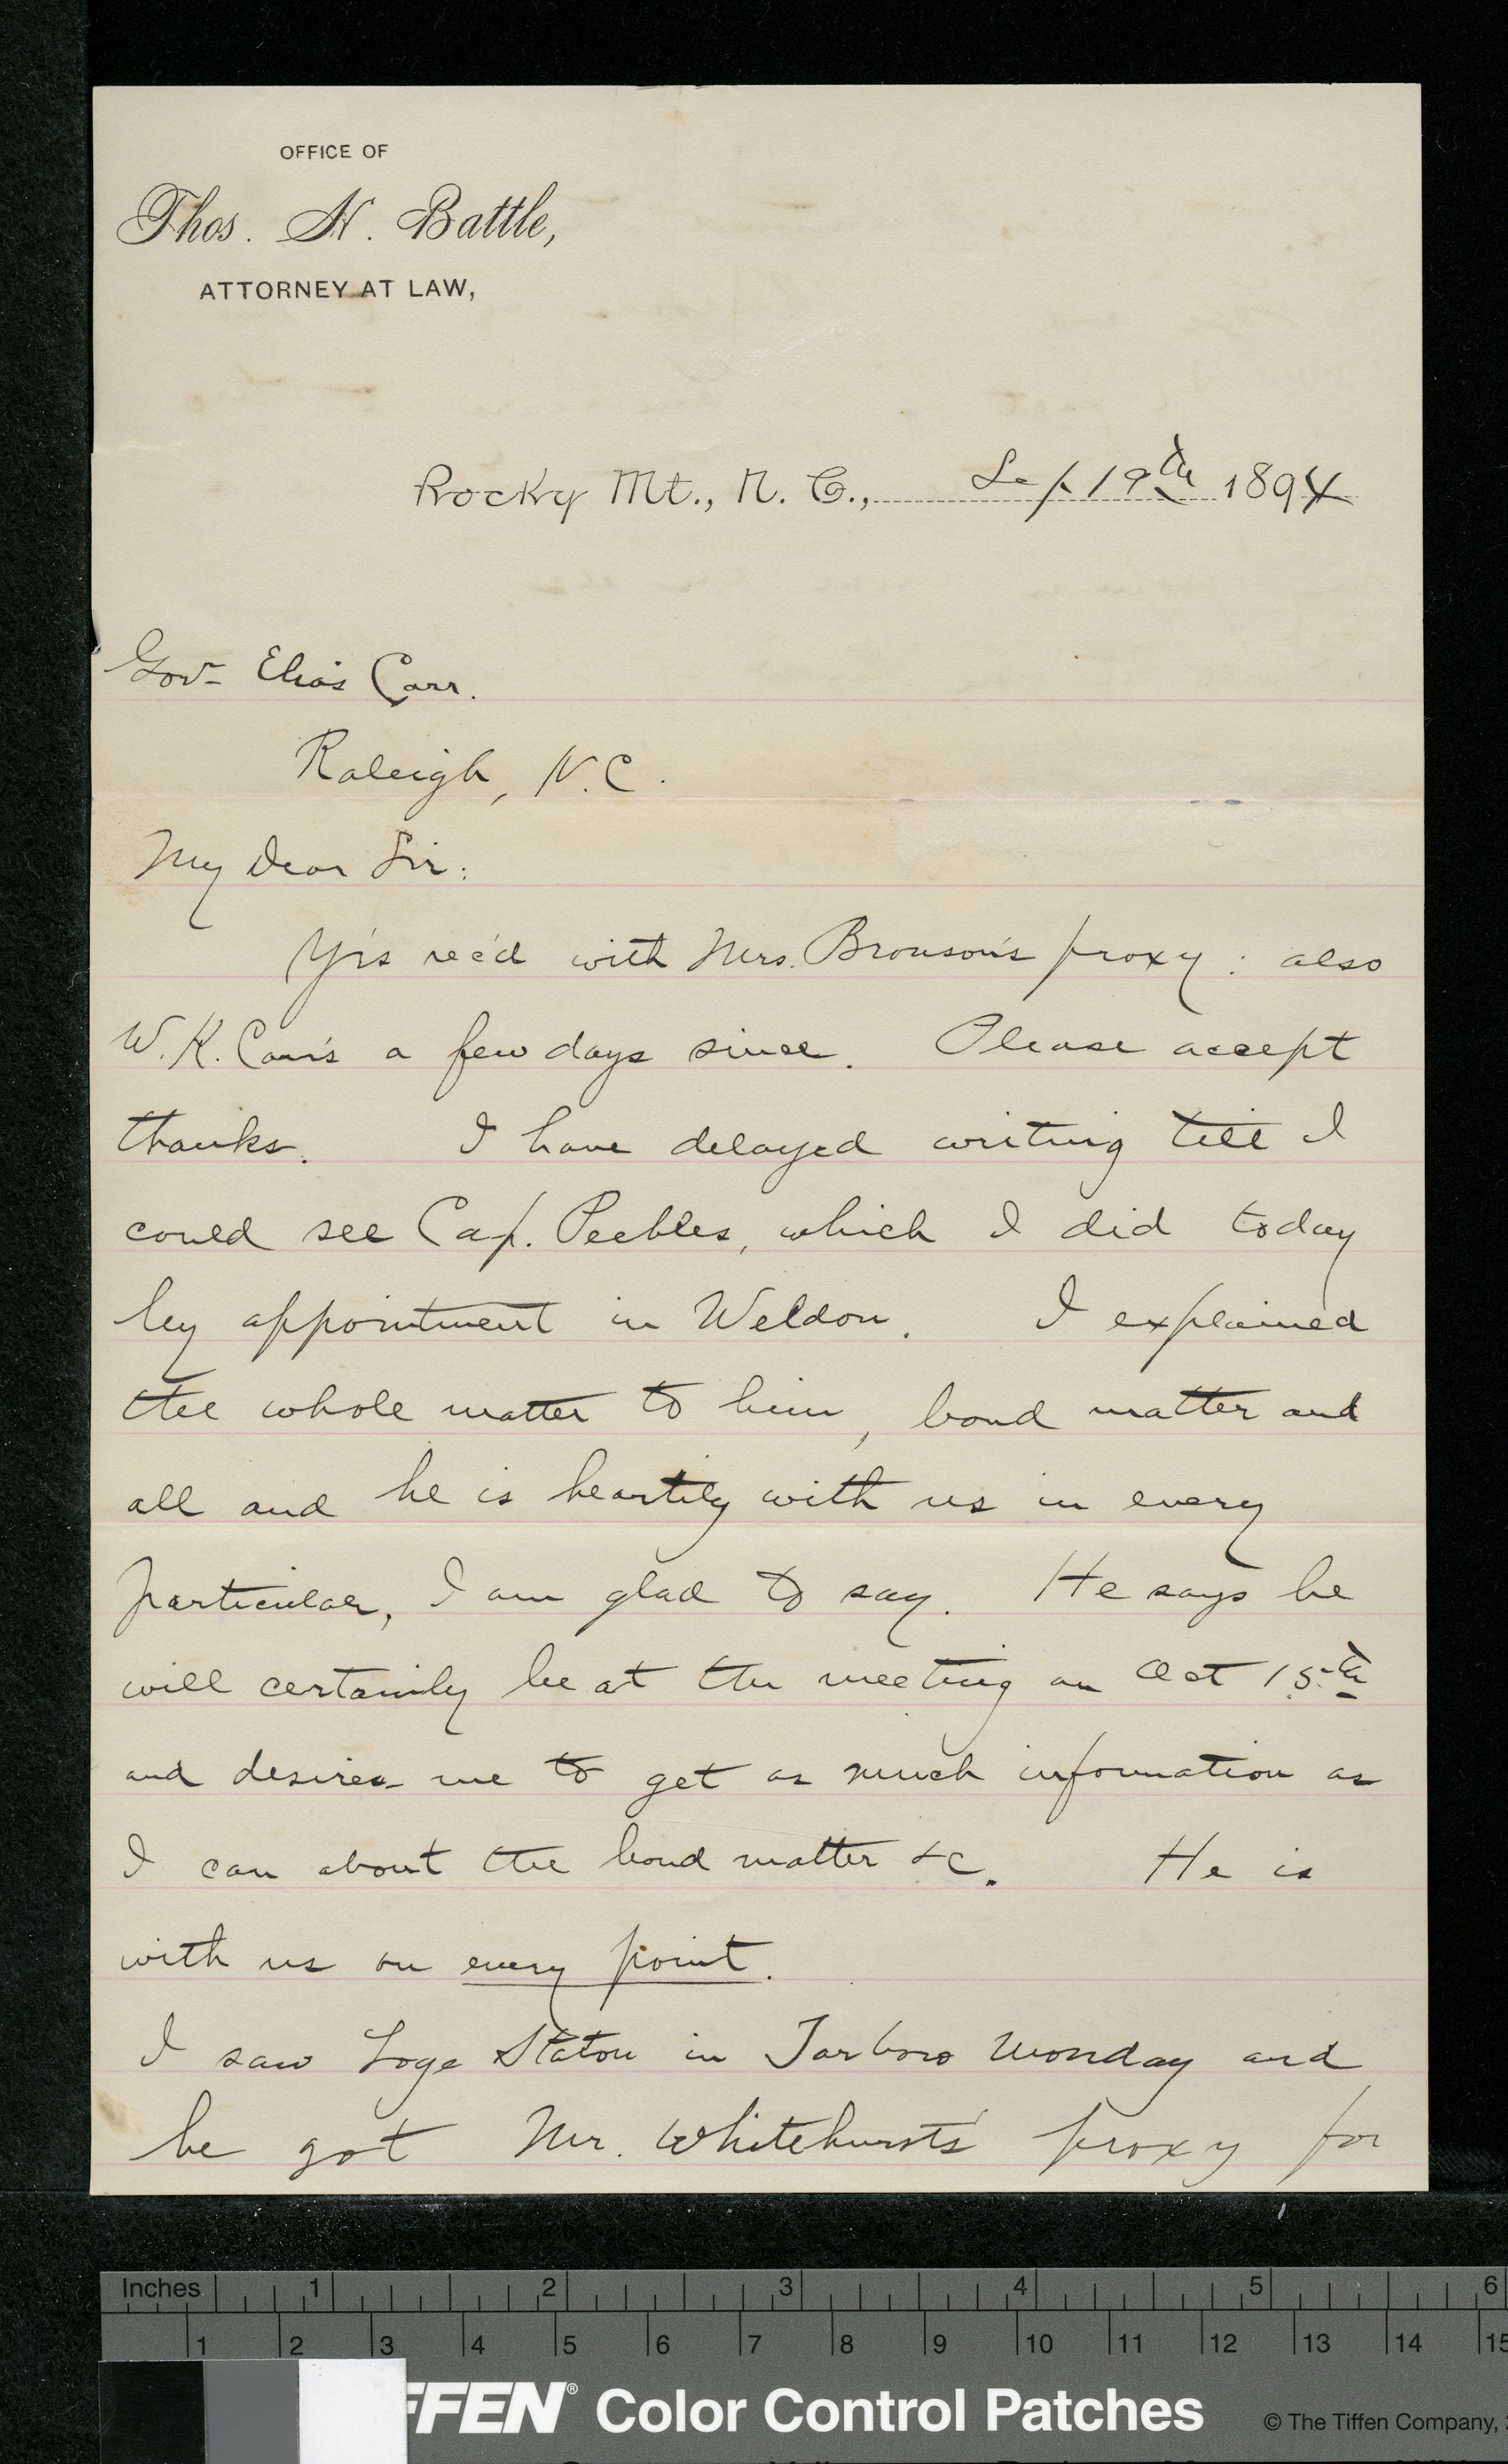 OFFICE OF
Thos. H. Battle,
ATTORNEY AT LAW,
Rocky Mt., N. C., Sep 19th 1894
Gov. Elias Carr.
Raleigh, N.C.
My Dear Sir:
Yrs rec'd with Mrs. Bronson's proxy: also
W.K. Carr's a few days since. Please accept
thanks. I have delayed writing till I
could see Cap. Peebles, which I did today
by appointment in Weldon. I explained
the whole matter to him, bond matter and
all and he is heartily with us in every
particular, I am glad to say. He says he
will certainly be at the meeting on Oct 15th
and desires me to get as much information as
I can about the bond matter &c. He is
with us on every point.
I saw Loge Staton in Tarboro Monday and
he got Mr. Whitehurst's proxy for
Inches 1 2 3 4 5 6
1 2 3 4 5 6 7 8 9 10 11 12 13 14 15
FFEN® Color Control Patches © The Tiffen Company,